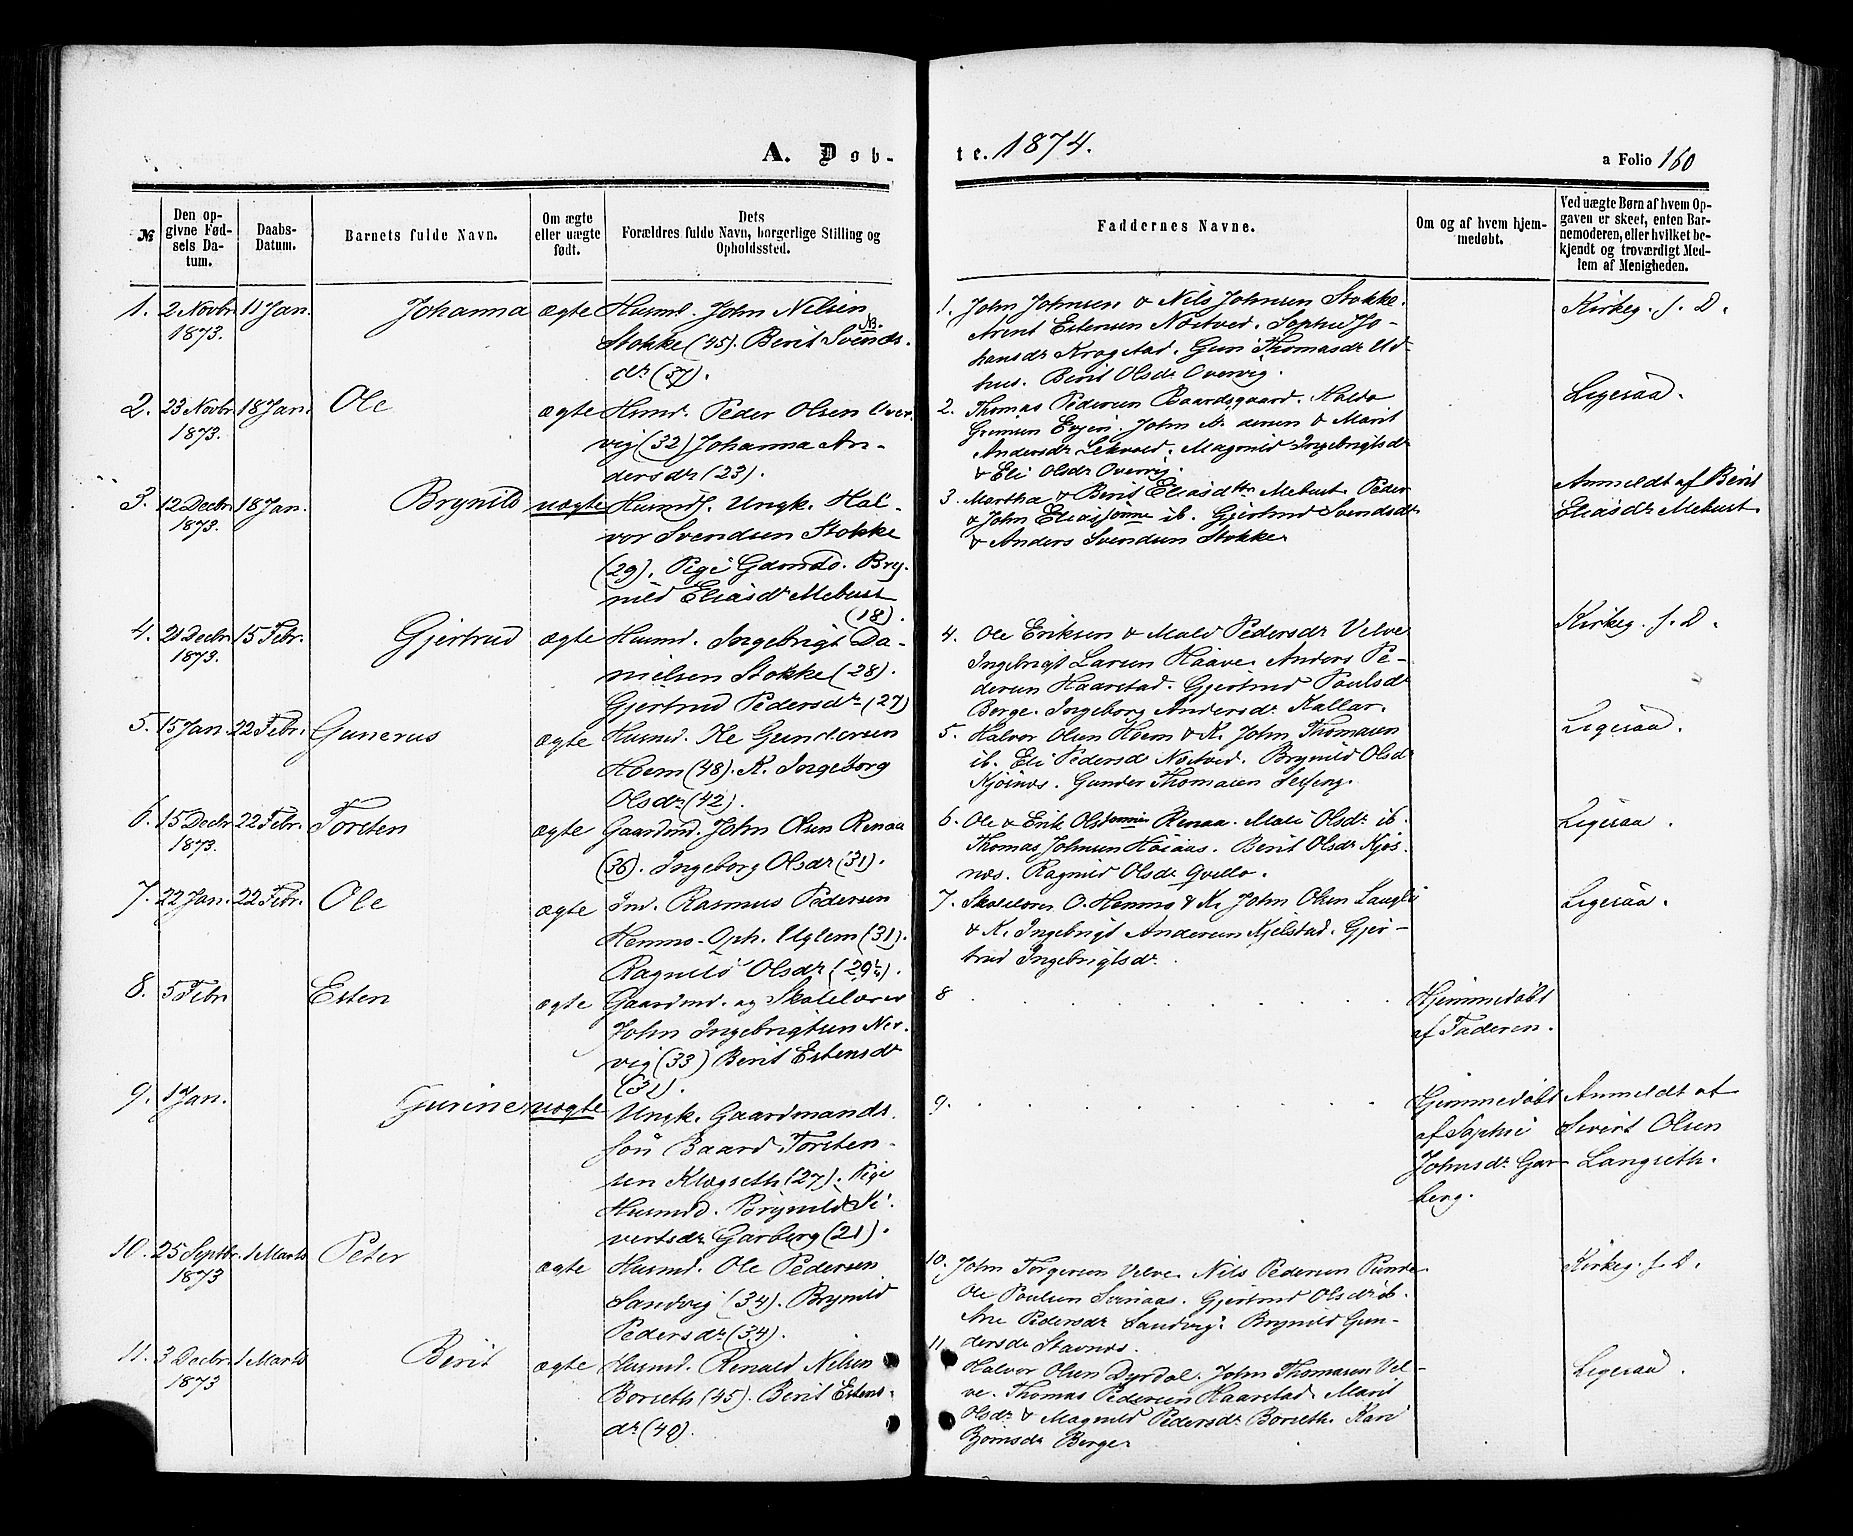 A. Døb-
te. 1874.
a Folio 160
№
Den op-
givne Fød-
sels Da-
tum.
Daabs-
Datum.
Barnets fulde Navn.
Om ægte
eller uægte
født.
Dets
Forældres fulde Navn, borgerlige Stilling og
Opholdssted.
Faddernes Navne.
Om og af hvem hjem-
medøbt.
Ved uægte Børn af hvem Op-
gaven er skeet, enten Bar-
nemoderen, eller hvilket be-
kjendt og troværdigt Med-
lem af Menigheden.
1. 2 Novbr 11 Jan. Johanna ægte Husmd. John Nilsen
1873. Stokke (45). Berit Svends-
dr (37).
1. John Johnsen & Nils Johnsen Stokke.
Arent Estensen Nostved. Sophie Jo-
hansdr Kragstad. Guri Thomasdr Ud-
hus. Berit Olsdr Overvig.
Kirkeg. f. D.
2. 23 Novbr 18 Jan. Ole ægte Husmd. Peder Olsen Over-
1873. vig (32) Johanna An-
dersdr (23).
2. Thomas Pedersen Baardsgaard. Haldo
Evjen. John & Marit
Andersdr. Magnild Ingebrigtsdr
& Eli Olsdr Overvig.
Ligesaa.
3. 12 Decbr 18 Jan. Brynild uægte Husmdf. Ungk. Hal-
1873. vor Svendsen Stokke
(29). Pige Gdmdd. Bry-
nild Eliasdr Mebust
(18).
3. Martha & Berit Eliasdtr Mebust. Peder
& John Eliassønne ib. Gjertrud Svendsdr
& Anders Svendsen Stokke
Anmeldt af Berit
Eliasdr Mebust.
4. 21 Decbr 15 Febr. Gjertrud ægte Husmd. Ingebrigt Da-
1873. nielsen Stokke (28).
Gjertrud Pedersdr (27)
4. Ole Eriksen & Mald Pedersdr Velve
Ingebrigt Larsen Haave. Anders Pe-
dersen Haarstad. Gjertrud Poulsdr
Berge. Ingeborg Andersdr Kallar.
Kirkeg. f. D.
5. 15 Jan. 22 Febr. Gunerus ægte Husmd. Ole Gundersen
Hoem (48). K. Ingeborg
Olsdr (42).
5. Halvor Olsen Hoem & K. John Thomasen
ib. Eli Pedersdr Nostved. Brynild Olsdr
Kjøsnes. Gunder Thomasen
Ligesaa.
6. 15 Decbr 22 Febr. Torsten ægte Gaardmd. John Olsen Renaa
1873. (36). Ingeborg Olsdr (31).
6. Ole & Erik Olssønne Renaa. Mali Olsdr ib.
Thomas Johnsen Hoiaas. Berit Olsdr Kjøs-
nes. Ragnild Olsdr Qvello.
Ligesaa.
7. 22 Jan. 22 Febr. Ole ægte Ind. Rasmus Pedersen
Hemmo. Oph. Uglem (31).
Ragnild Olsdr (29½).
7. Skolelærer O. Hemmo & K. John Olsen Langli
& K. Ingebrigt Andersen Kjelstad. Gjer-
trud Ingebrigtsdr.
Ligesaa.
8. 5 Febr Esten ægte Gaardmd. og Skolelærer
John Ingebrigtsen Ner-
vig (33) Berit Estensdr
(31).
8
Hjemmedøbt
af Faderen.
9. 1 Jan. Gurine uægte Ungk. Gaardmands
søn Baard Torsten-
sen Klegseth (27). Pige
Husmd. Brynild Si-
vertsdr Garberg (21).
9.
Hjemmedøbt
af Sophie
Johnsdr Gar-
berg.
Anmeldt af
Sivert Olsen
Langseth.
10. 25 Septbr. 1 Marts Peter ægte Husmd. Ole Pedersen
1873 Sandvig (34). Brynild
Pedersdr (34).
10. John Torgersen Velve. Nils Pedersen
Ole Poulsen Svinaas. Gjertrud Olsdr ib.
Ane Pedersdr Sandvig. Brynild Gun-
dersdr Stavnes.
Kirkeg. f. D.
11. 3 Decbr 1 Marts Berit ægte Husmd. Renald Nilsen
1873 Borseth (45). Berit Estens-
dr (40).
11. Halvor Olsen Dyrdal. John Thomasen Vel-
ve. Thomas Pedersen Haarstad. Marit
Olsdr & Magnild Pedersdr Borseth. Kari
Bjørnsdr Berge
Ligesaa.